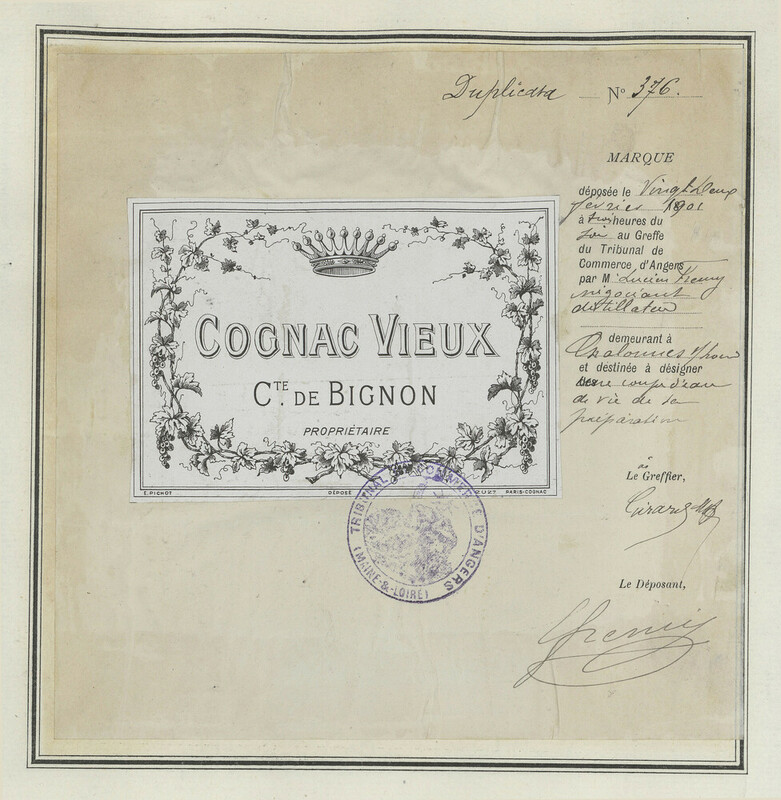 Duplicata — No 376.
MARQUE
déposée le Vingt deux
février 1901
à trois heures du
soir au Greffe
du Tribunal de
Commerce d'Angers
par M Lucien
négociant
distillateur
demeurant à
Chalonnes s/Loire
et destinée à désigner
d'eau
de vie de sa
préparation
Le Greffier,
Le Déposant,
COGNAC VIEUX
CTE. DE BIGNON
PROPRIÉTAIRE
E. PICHOT DÉPOSÉ PARIS-COGNAC
TRIBUNAL DE COMMERCE D'ANGERS
(MAINE-&-LOIRE)